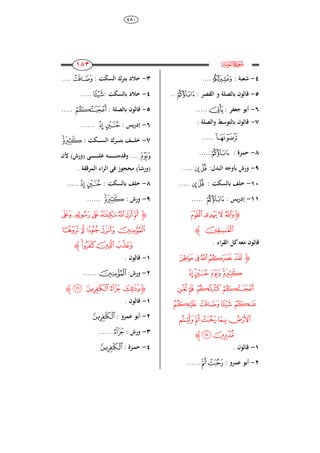 ٤٨٠
١٨٣
٤- شعبة : وَعَشِيرَتُكُمْ .....
٥- قالون بالصلة و القصر : ءَابَآؤُكُمُ ..
٦- أبو جعفر : يَأْتِىَ .....
٧- قالون بالتوسط والصلة :
وَرِضْوَٰنٍ .....
٨- حمزة : ءَابَآؤُكُمْ .....
٩- ورش بأوجه البدل: قُلْ إِن .....
١٠- خلف بالسكت : قُلْ إِن .....
١١- إدريس : ءَابَآؤُكُمْ .....
﴿ وَٱللَّهُ لَا يَهْدِى ٱلْقَوْمَ
ٱلْفَٰسِقِينَ ﴾
قالون معه كل القراء .
﴿ لَقَدْ نَصَرَكُمُ ٱللَّهُ فِى مَوَاطِنَ
كَثِيرَةٍ وَيَوْمَ حُنَيْنٍ إِذْ
أَعْجَبَتْكُمْ كَثْرَتُكُمْ فَلَمْ تُغْنِ
عَنكُمْ شَيْـًٔا وَضَاقَتْ عَلَيْكُمُ
ٱلْأَرْضُ بِمَا رَحُبَتْ ثُمَّ وَلَّيْتُم
مُّدْبِرِينَ ٢٥ ﴾
١- قالون .
٢- أبو عمرو : رَحُبَتْ ثُمَّ ......
٣- خلاد بترك السكت : وَضَاقَتْ ....
٤- خلاد بالسكت : شَيْـًٔا .....
٥- قالون بالصلة : أَعْجَبَتْكُمْ .....
٦- إدريس : حُنَيْنٍ إِذْ ......
٧- خلف بترك السكت : كَثِيرَةٍ
وَيَوْمَ ... وقدمته على (ورش) لأن
(ورشا) محجوز في الراء المرققة .
٨- خلف بالسكت : حُنَيْنٍ إِذْ .....
٩- ورش : كَثِيرَةٍ ......
﴿ ثُمَّ أَنزَلَ ٱللَّهُ سَكِينَتَهُۥ عَلَىٰ رَسُولِهِۦ وَعَلَى
ٱلْمُؤْمِنِينَ وَأَنزَلَ جُنُودًا لَّمْ تَرَوْهَا
وَعَذَّبَ ٱلَّذِينَ كَفَرُوا۟ ﴾
١- قالون .
٢- ورش : ٱلْمُؤْمِنِينَ ......
﴿ وَذَٰلِكَ جَزَآءُ ٱلْكَٰفِرِينَ ٢٦ ﴾
١- قالون .
٢- أبو عمرو : ٱلْكَٰفِرِينَ
٣- ورش : جَزَآءُ ......
٤- حمزة : ٱلْكَٰفِرِينَ